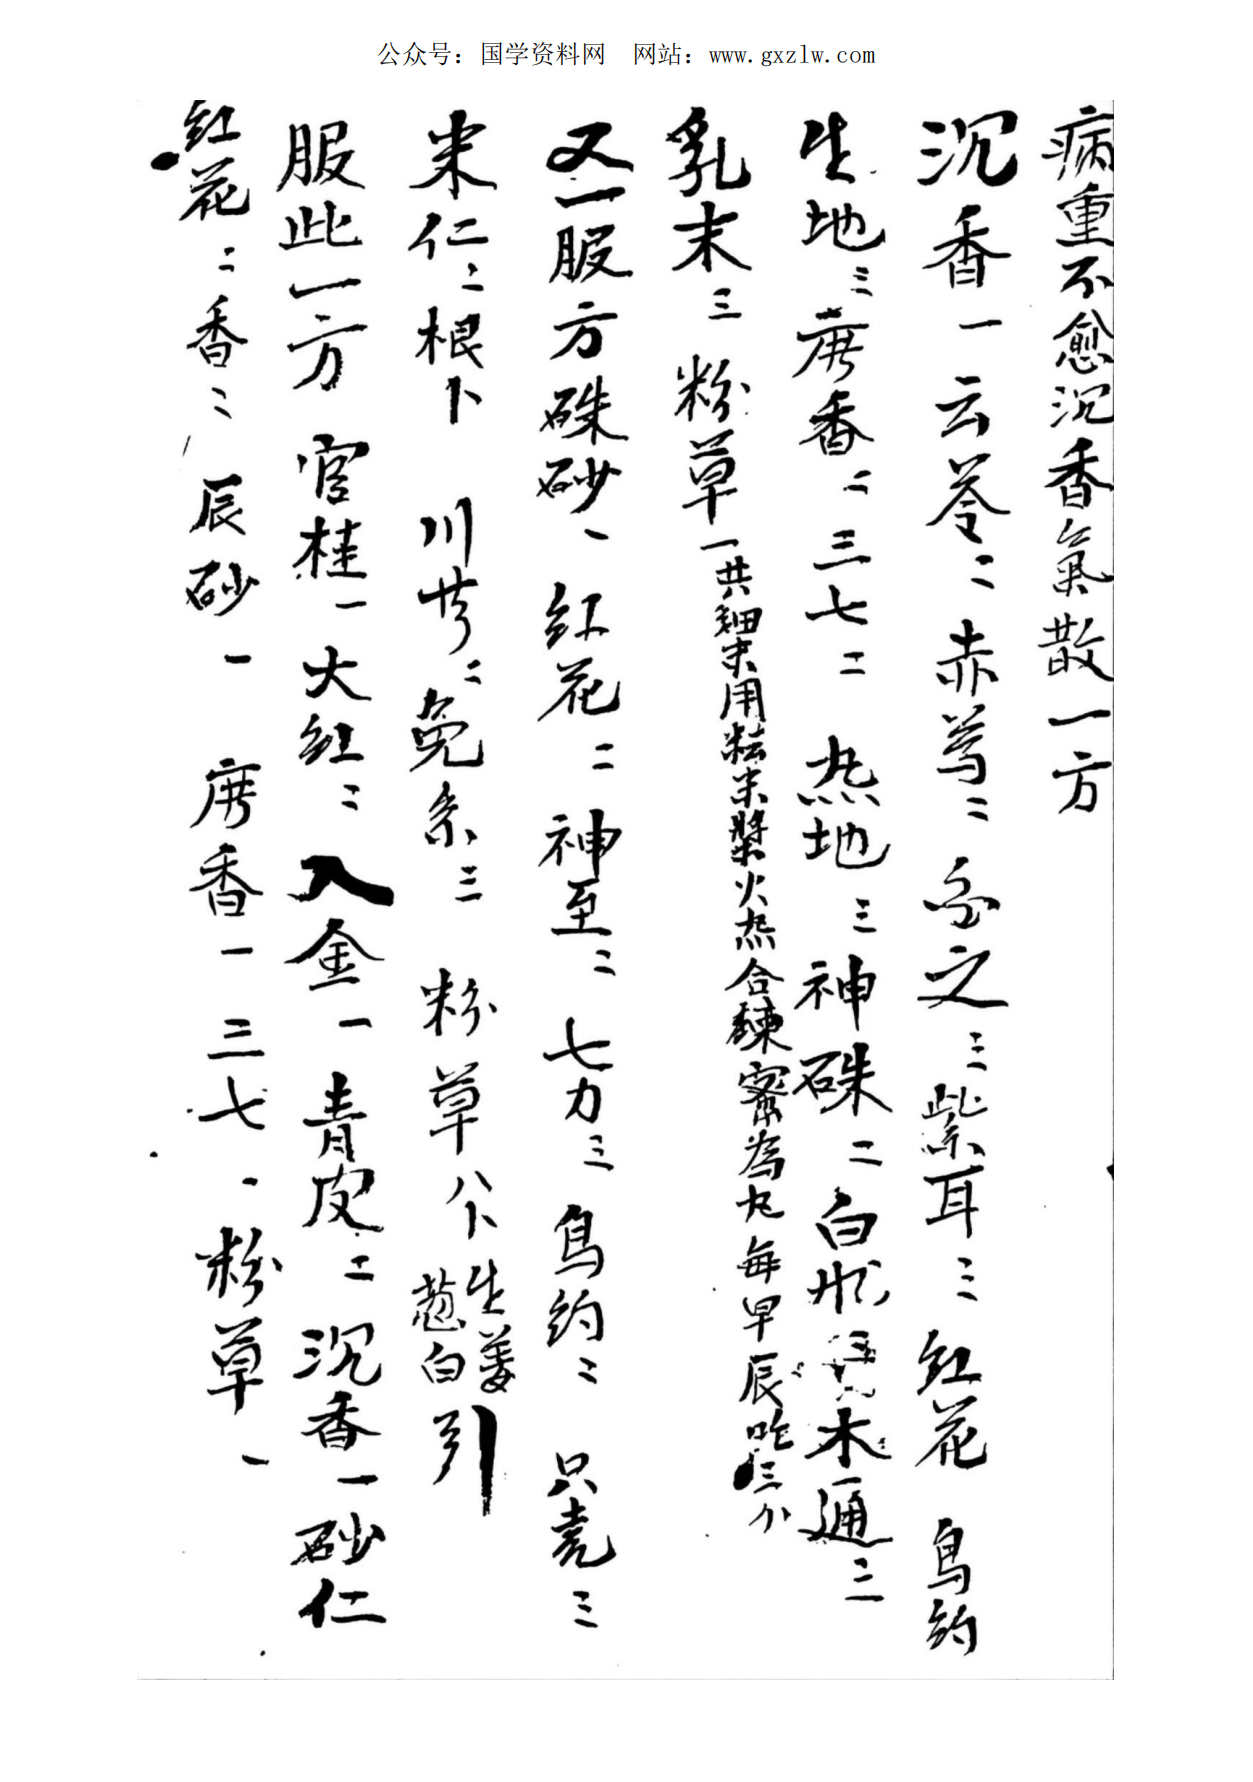 公众号：国学资料网　网站：www.gxzlw.com
病重不愈沉香氣散一方
沉香一 云苓二 赤芍二 分之三 紫耳三 红花 烏約
生地三 麝香二 三七二 熱地三 神砞二 白 木通三
乳末三 粉草一共細末用粘米漿火熱合鍊蜜為丸每早辰 三分
又一服方硃砂一 红花二 神至二 七力三 烏約二 只壳三
米仁二 根卜 川芎二 兔糸三 粉草八卜 生姜 葱白 引
服此一方 官桂一 大红二 入金一 青皮二 沉香一 砂仁
红花二 香二 辰砂一 麝香一 三七一 粉草一